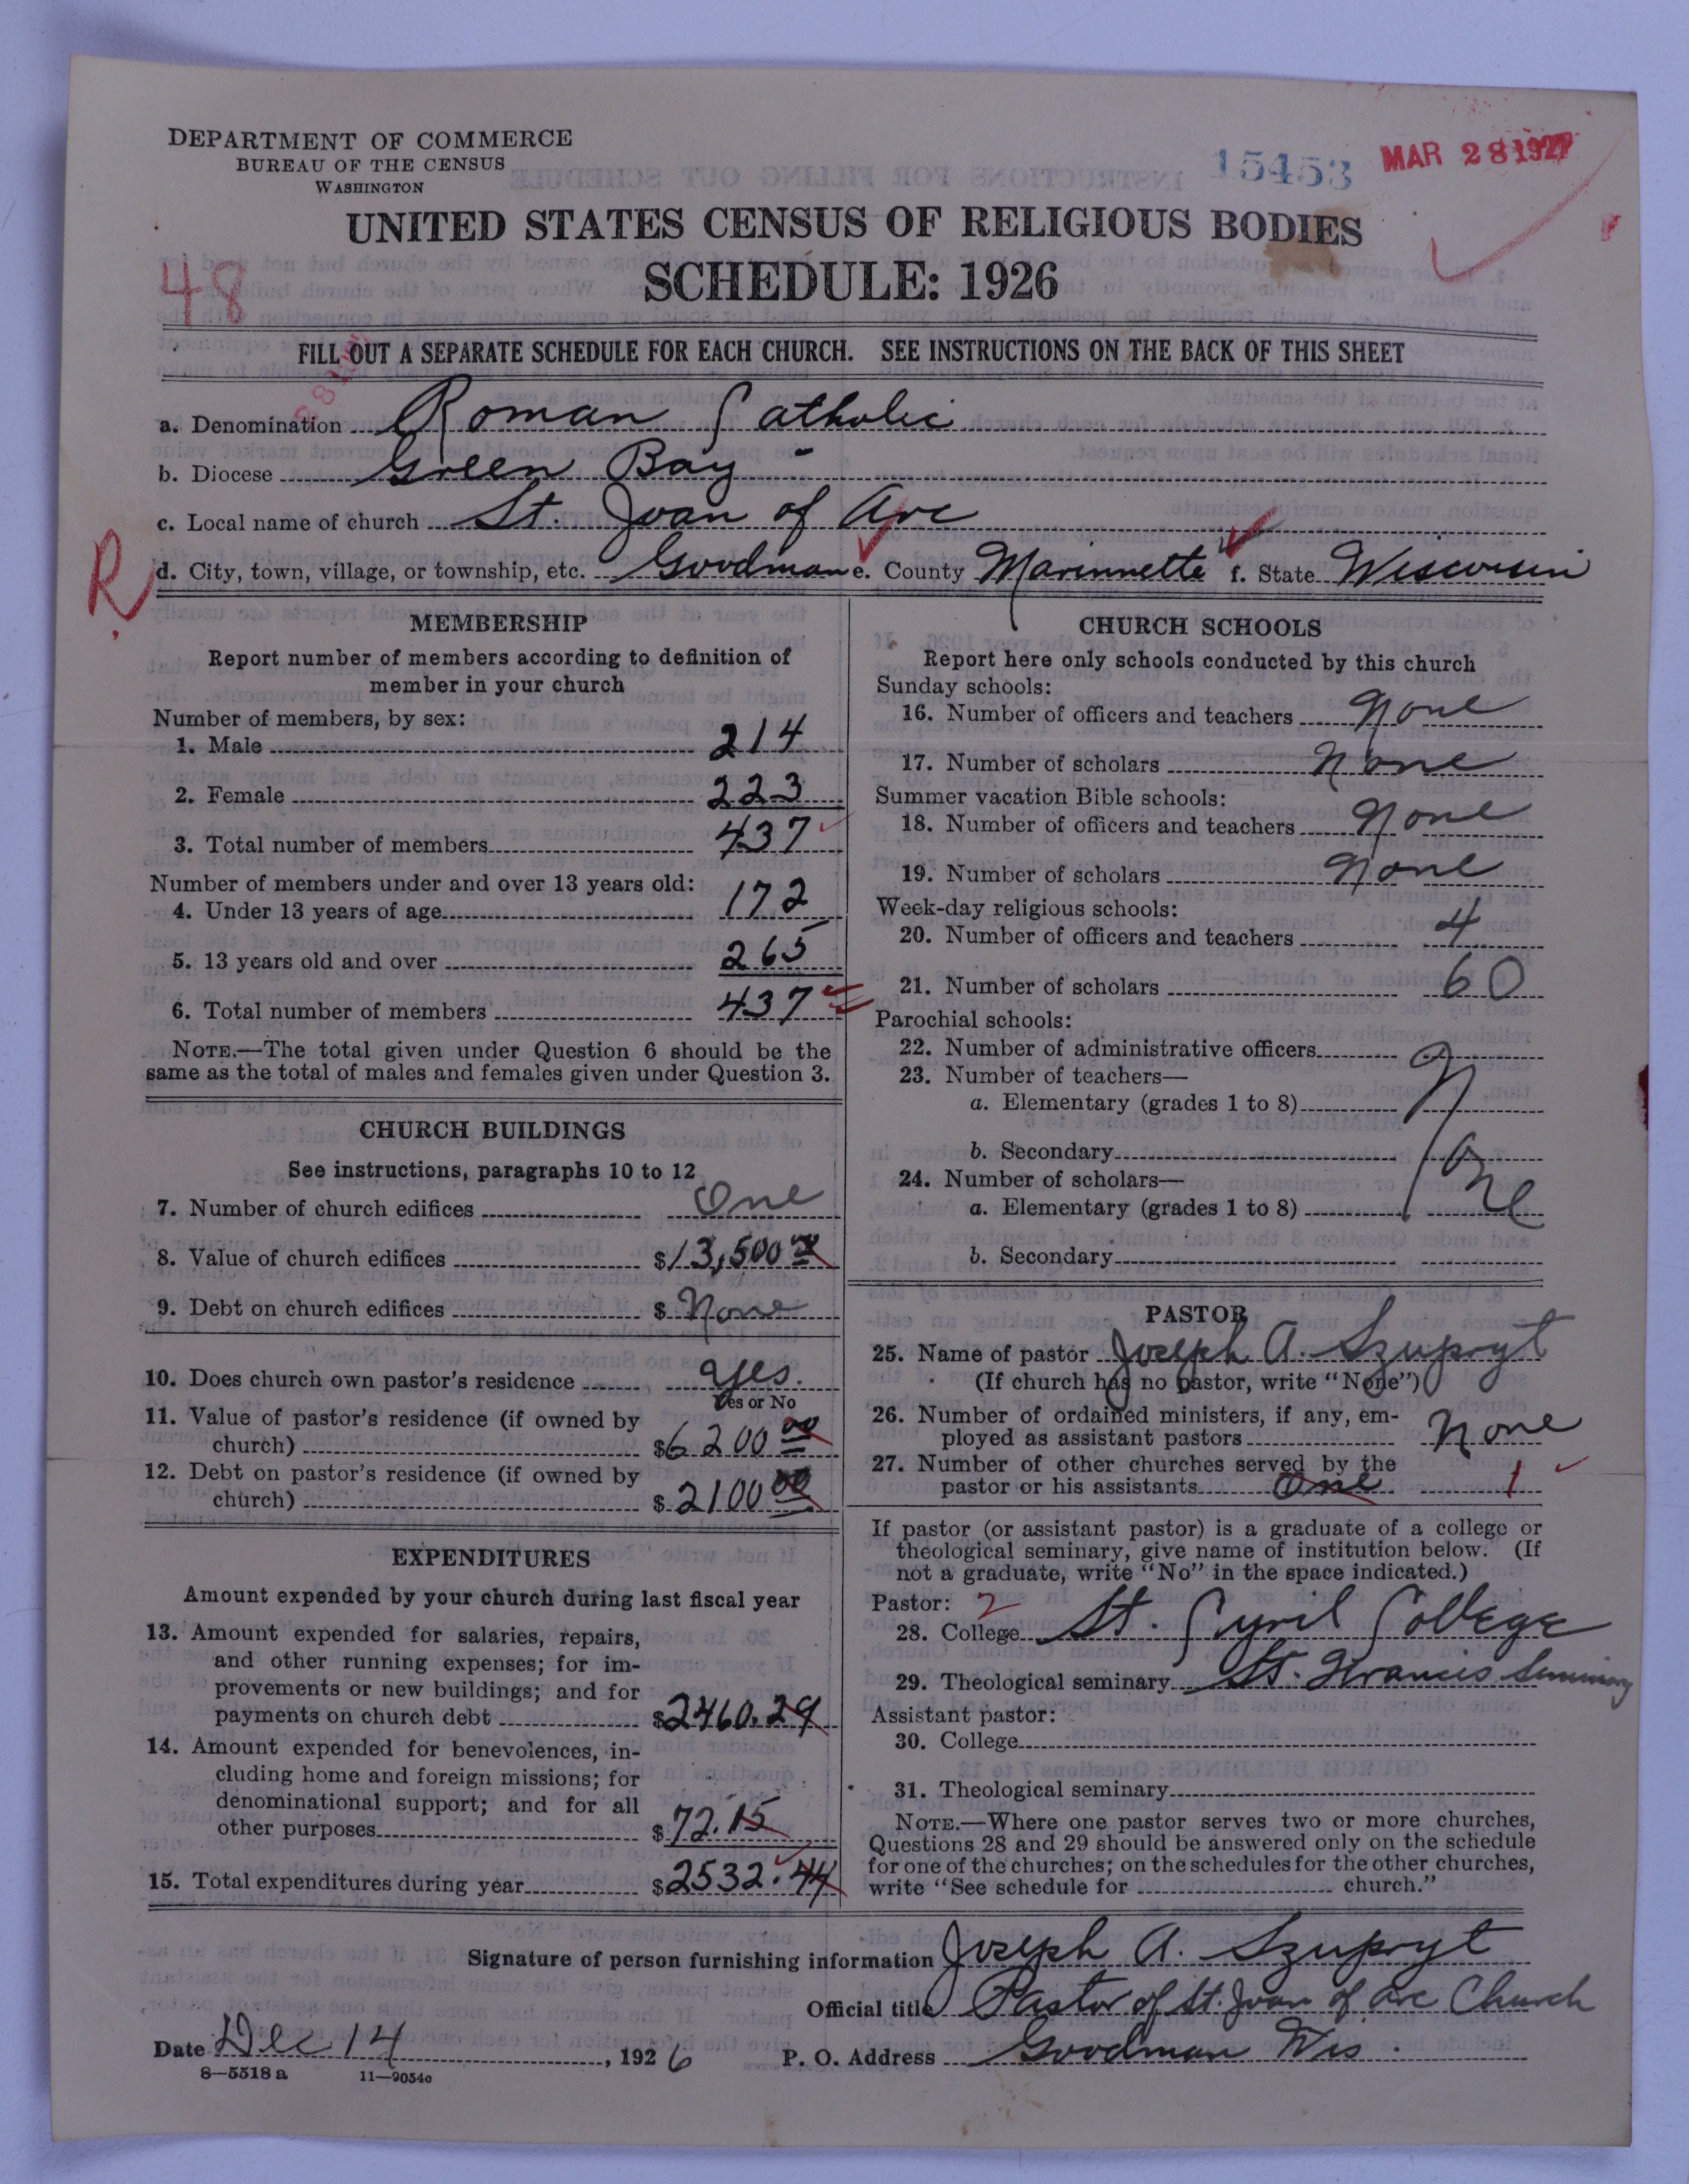 DEPARTMENT OF COMMERCE
BUREAU OF THE CENSUS
WASHINGTON
15453
MAR 28 1927
UNITED STATES CENSUS OF RELIGIOUS BODIES
SCHEDULE: 1926
48
FILL OUT A SEPARATE SCHEDULE FOR EACH CHURCH. SEE INSTRUCTIONS ON THE BACK OF THIS SHEET
a. Denomination Roman Catholic
b. Diocese Green Bay
c. Local name of church St. Joan of Arc
R
d. City, town, village, or township, etc. Goodman e. County Marinnette f. State Wisconsin
MEMBERSHIP
Report number of members according to definition of
member in your church
Number of members, by sex:
1. Male 214
2. Female 223
3. Total number of members 437
Number of members under and over 13 years old:
4. Under 13 years of age 172
5. 13 years old and over 265
6. Total number of members 437
NOTE.—The total given under Question 6 should be the
same as the total of males and females given under Question 3.
CHURCH BUILDINGS
See instructions, paragraphs 10 to 12
7. Number of church edifices One
8. Value of church edifices $13,500 00
9. Debt on church edifices $ None
10. Does church own pastor's residence Yes.
Yes or No
11. Value of pastor's residence (if owned by
church) $6200 00
12. Debt on pastor's residence (if owned by
church) $2100 00
EXPENDITURES
Amount expended by your church during last fiscal year
13. Amount expended for salaries, repairs,
and other running expenses; for im-
provements or new buildings; and for
payments on church debt $2460.29
14. Amount expended for benevolences, in-
cluding home and foreign missions; for
denominational support; and for all
other purposes $72.15
15. Total expenditures during year $2532.44
CHURCH SCHOOLS
Report here only schools conducted by this church
Sunday schools:
16. Number of officers and teachers None
17. Number of scholars None
Summer vacation Bible schools:
18. Number of officers and teachers None
19. Number of scholars None
Week-day religious schools:
20. Number of officers and teachers 4
21. Number of scholars 60
Parochial schools:
22. Number of administrative officers
23. Number of teachers—
a. Elementary (grades 1 to 8)
None
b. Secondary
24. Number of scholars—
a. Elementary (grades 1 to 8)
b. Secondary
PASTOR
25. Name of pastor Joseph A. Szupryt
(If church has no pastor, write "None")
26. Number of ordained ministers, if any, em-
ployed as assistant pastors None
27. Number of other churches served by the
pastor or his assistants One 1
If pastor (or assistant pastor) is a graduate of a college or
theological seminary, give name of institution below. (If
not a graduate, write "No" in the space indicated.)
Pastor: 2
28. College St. Cyril College
29. Theological seminary St. Francis Seminary
Assistant pastor:
30. College
31. Theological seminary
NOTE.—Where one pastor serves two or more churches,
Questions 28 and 29 should be answered only on the schedule
for one of the churches; on the schedules for the other churches,
write "See schedule for church."
Signature of person furnishing information Joseph A. Szupryt
Official title Pastor of St. Joan of Arc Church
Date Dec 14, 1926 P. O. Address Goodman Wis.
8—5518a 11—9054o